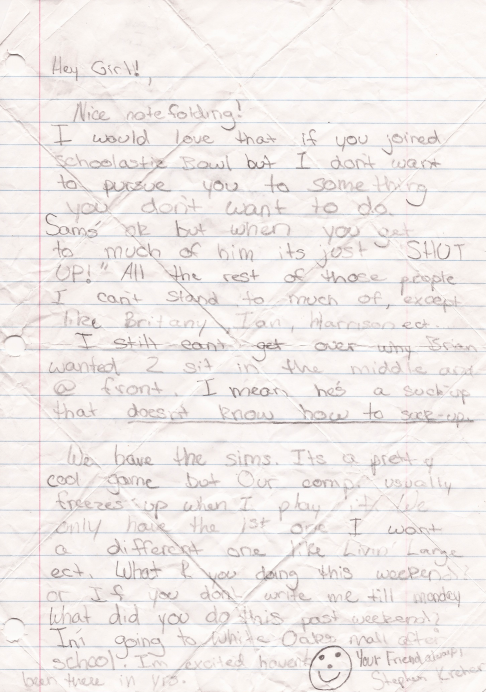 Hey Girl!,
Nice notefolding!
I would love that if you joined
Schoolastic Bowl but I dont want
to pursue you to something
you don't want to do.
Sams ok but when you get
to much of him its just "SHUT
UP!" All the rest of those people
I can't stand to much of, except
like Britany, Ian, Harrison ect.
I still can't get over why Brian
wanted 2 sit in the middle and
@ front. I mean he's a suck-up
that doesn't know how to suck-up.
We have the sims. Its a pretty
cool game but Our comp. usually
freezes up when I play it. We
only have the 1st one I want
a different one like Livin Large
ect. What R you doing this weekend?
or If you don't write me till monday
what did you do this past weekend?
Im going to White Oaks mall after
school. I'm excited haven't
been there in yrs.
Your Friend always,
Stephen